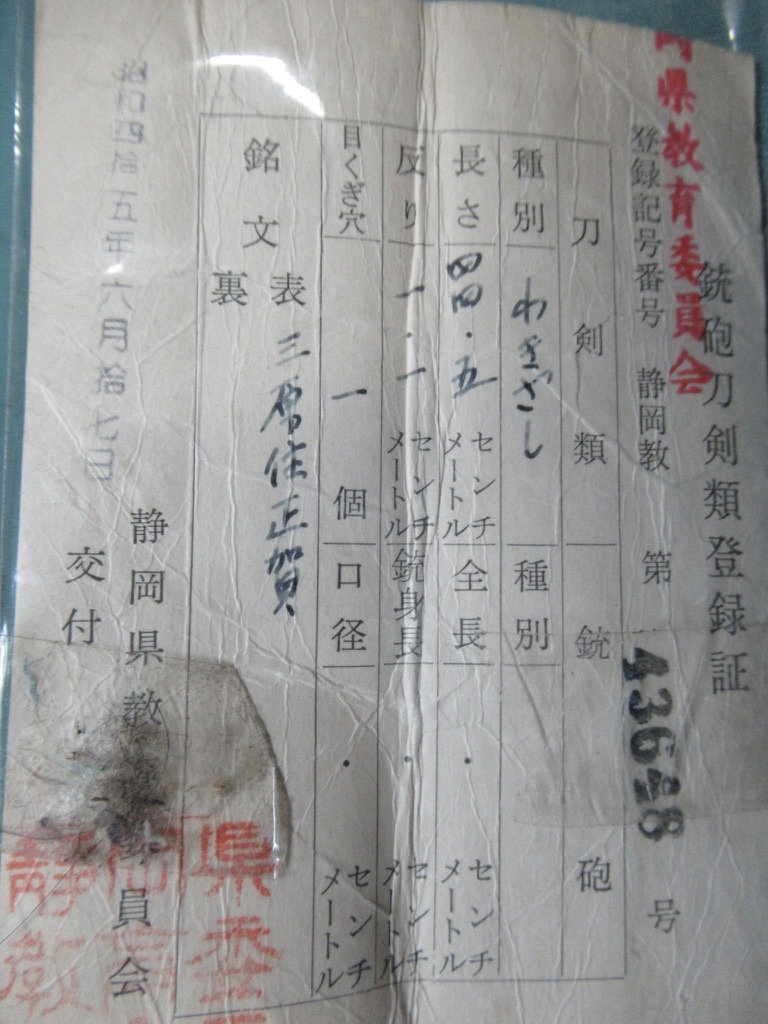 岡県教育委員会
銃砲刀剣類登録証
登録記号番号 静岡教 第 号
刀剣類 銃砲
種別 わきざし 種別
長さ 四四・五 センチメートル 全長 ・ センチメートル
反り 一・一 センチメートル 銃身長 ・ センチメートル
目くぎ穴 一 個 口径 ・ センチメートル
銘文 表 三原住正賀
裏
昭和四拾五年六月拾七日
静岡県教 委員会
交付